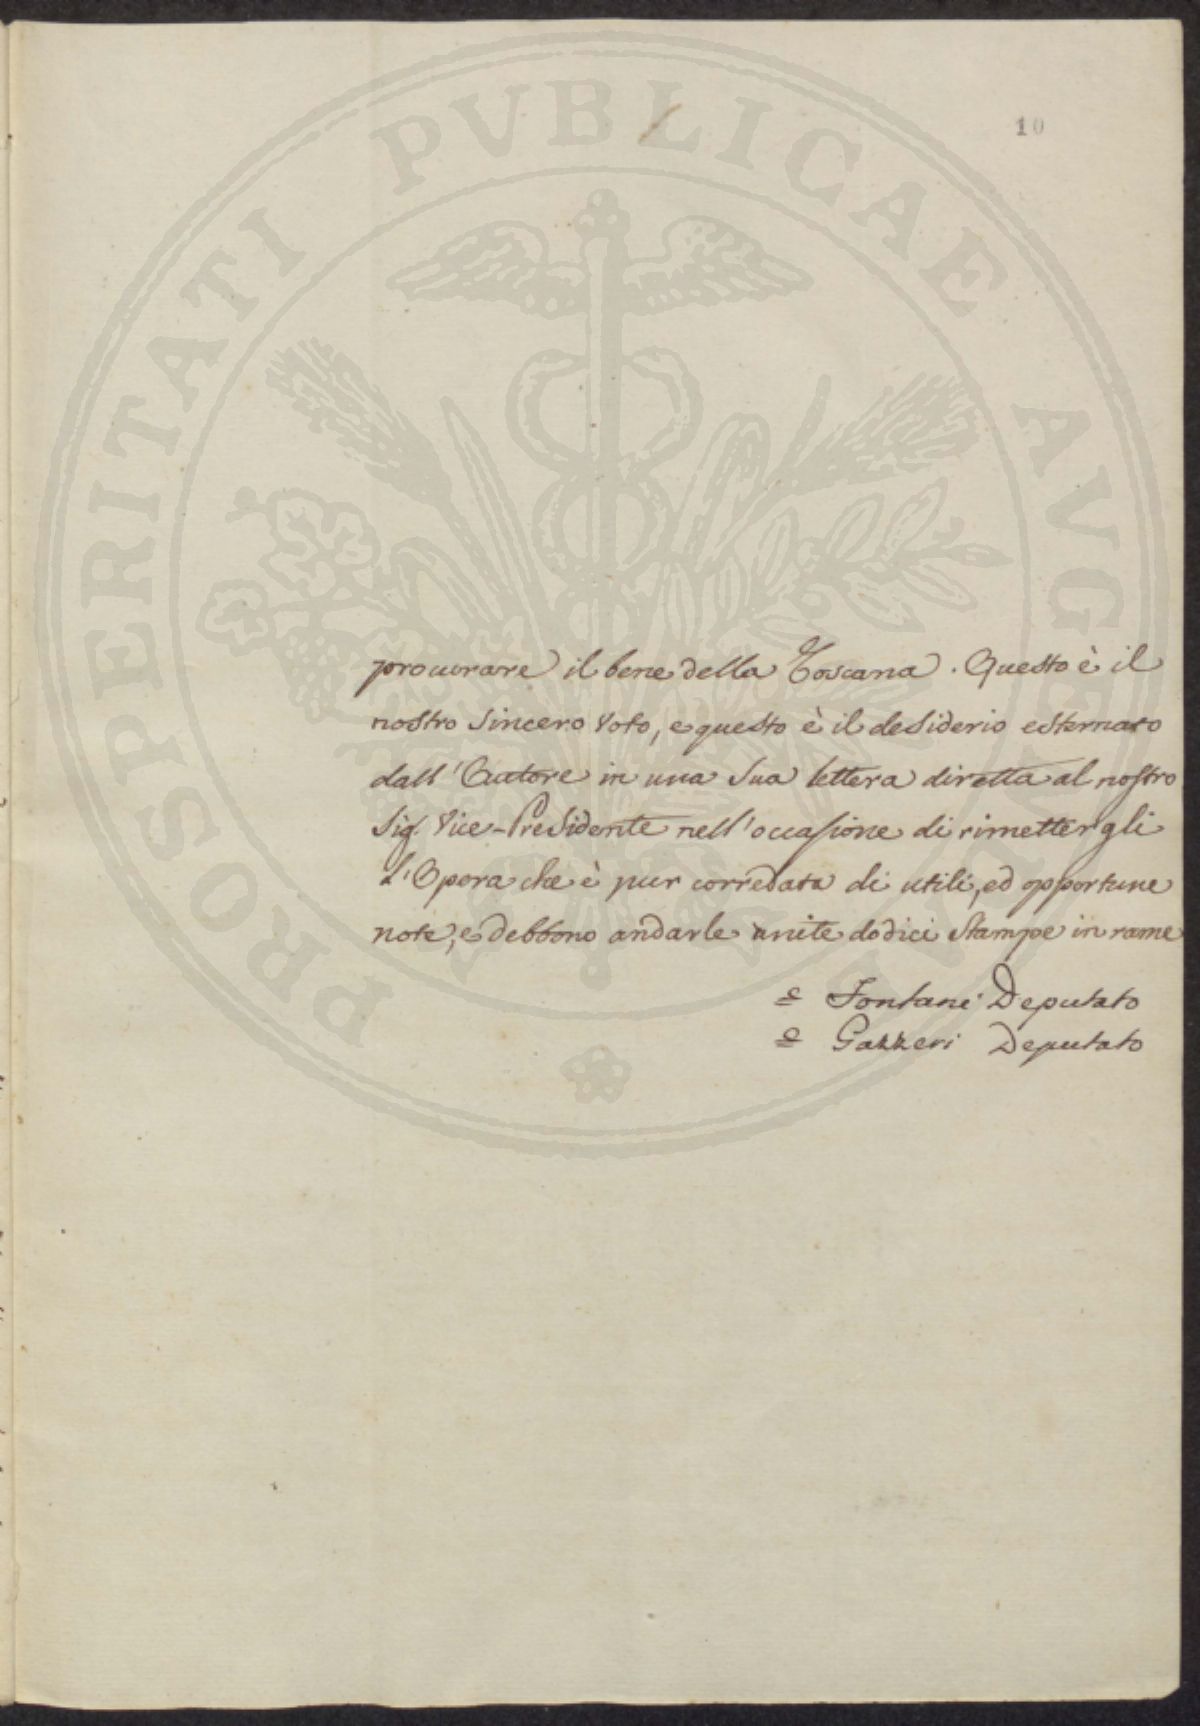 10
PROSPERITATI PVBLICAE AVGENDAE
procurare il bene della Toscana. Questo è il
nostro sincero voto, e questo è il desiderio esternato
dall'Autore in una sua lettera diretta al nostro
Sig. Vice-Presidente nell'occasione di rimettergli
l'Opera che è pur corredata di utili, ed opportune
note, e debbono andarle unite dodici Stampe in rame
= Fontani Deputato
= Gazzeri Deputato